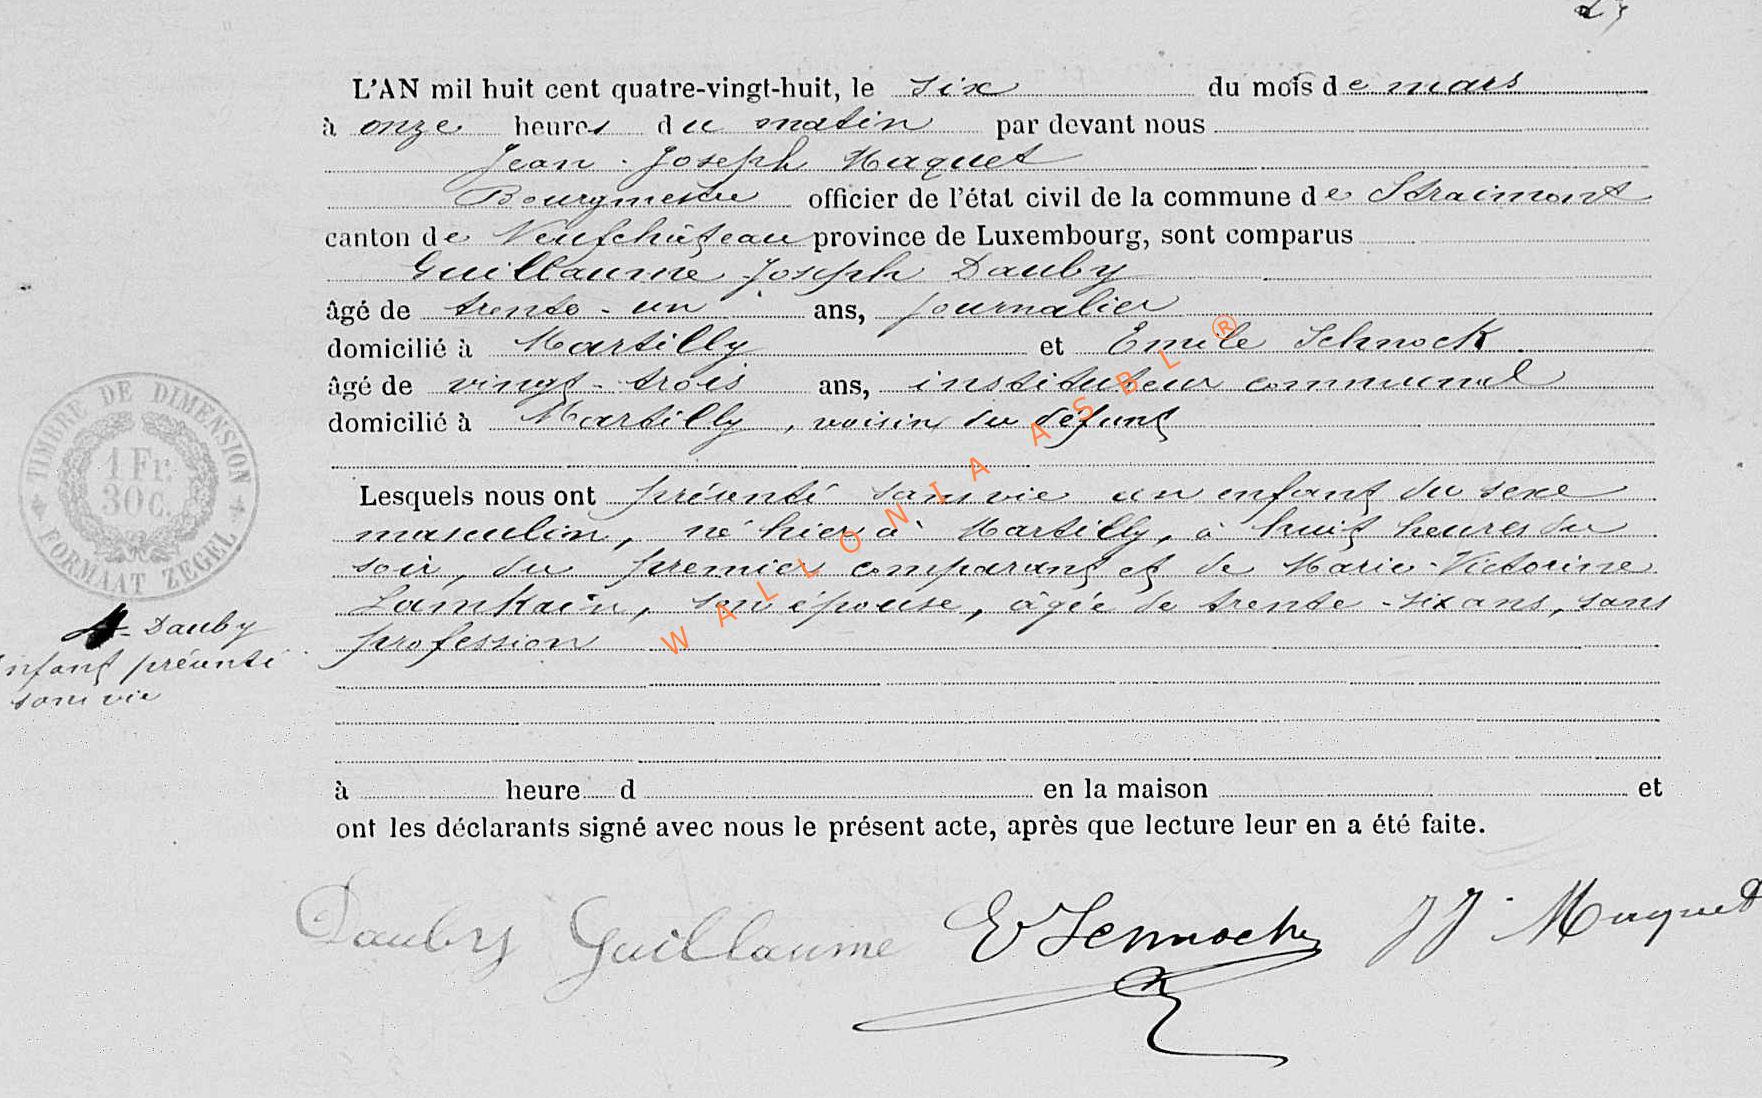 L'AN mil huit cent quatre-vingt-huit, le six du mois de mars
à onze heures du matin par devant nous
Jean-Joseph Maquet
Bourgmestre officier de l'état civil de la commune de Straimont
canton de Neufchâteau province de Luxembourg, sont comparus
Guillaume Joseph Dauby
âgé de trente-un ans, journalier
domicilié à Martilly et Emile Schnock
âgé de vingt-trois ans, instituteur communal
domicilié à Martilly, voisin du défunt
Lesquels nous ont présenté sans vie un enfant du sexe
masculin, né hier à Martilly, à huit heures du
soir, du premier comparant et de Marie-Victorine
Lamkain, son épouse, âgée de trente-six ans, sans
profession
à heure d en la maison et
ont les déclarants signé avec nous le présent acte, après que lecture leur en a été faite.
Dauby Guillaume E Schnock JJ. Maquet
TIMBRE DE DIMENSION
1 Fr.
30 c.
FORMAAT ZEGEL
Dauby
enfant présenté
sans vie
WALLONIA ASBL ®